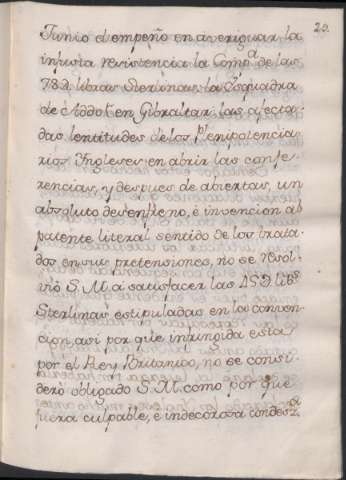 23.
Junio el empeño en averiguar la
injusta resistencia la Comp.a de las
78D. libras Sterlinas, la Esquadra
de Addoc en Gibraltar: las afecta-
das lentitudes de los plenipotencia-
rios Ingleses en abrir las confe-
rencias, y despues de abiertas, un
absoluto desenfreno, è invencion al
patente literal sentido de los trata-
dos en sus pretensiones, no se resol-
viò S. M. à satisfacer las 95D. lib.s
Sterlinas estipuladas en la conven-
cion, asi por que infringida esta
por el Rey Britanico, no se consi-
derò obligado S. M. como por que
fuera culpable, è indecorosa condes.a